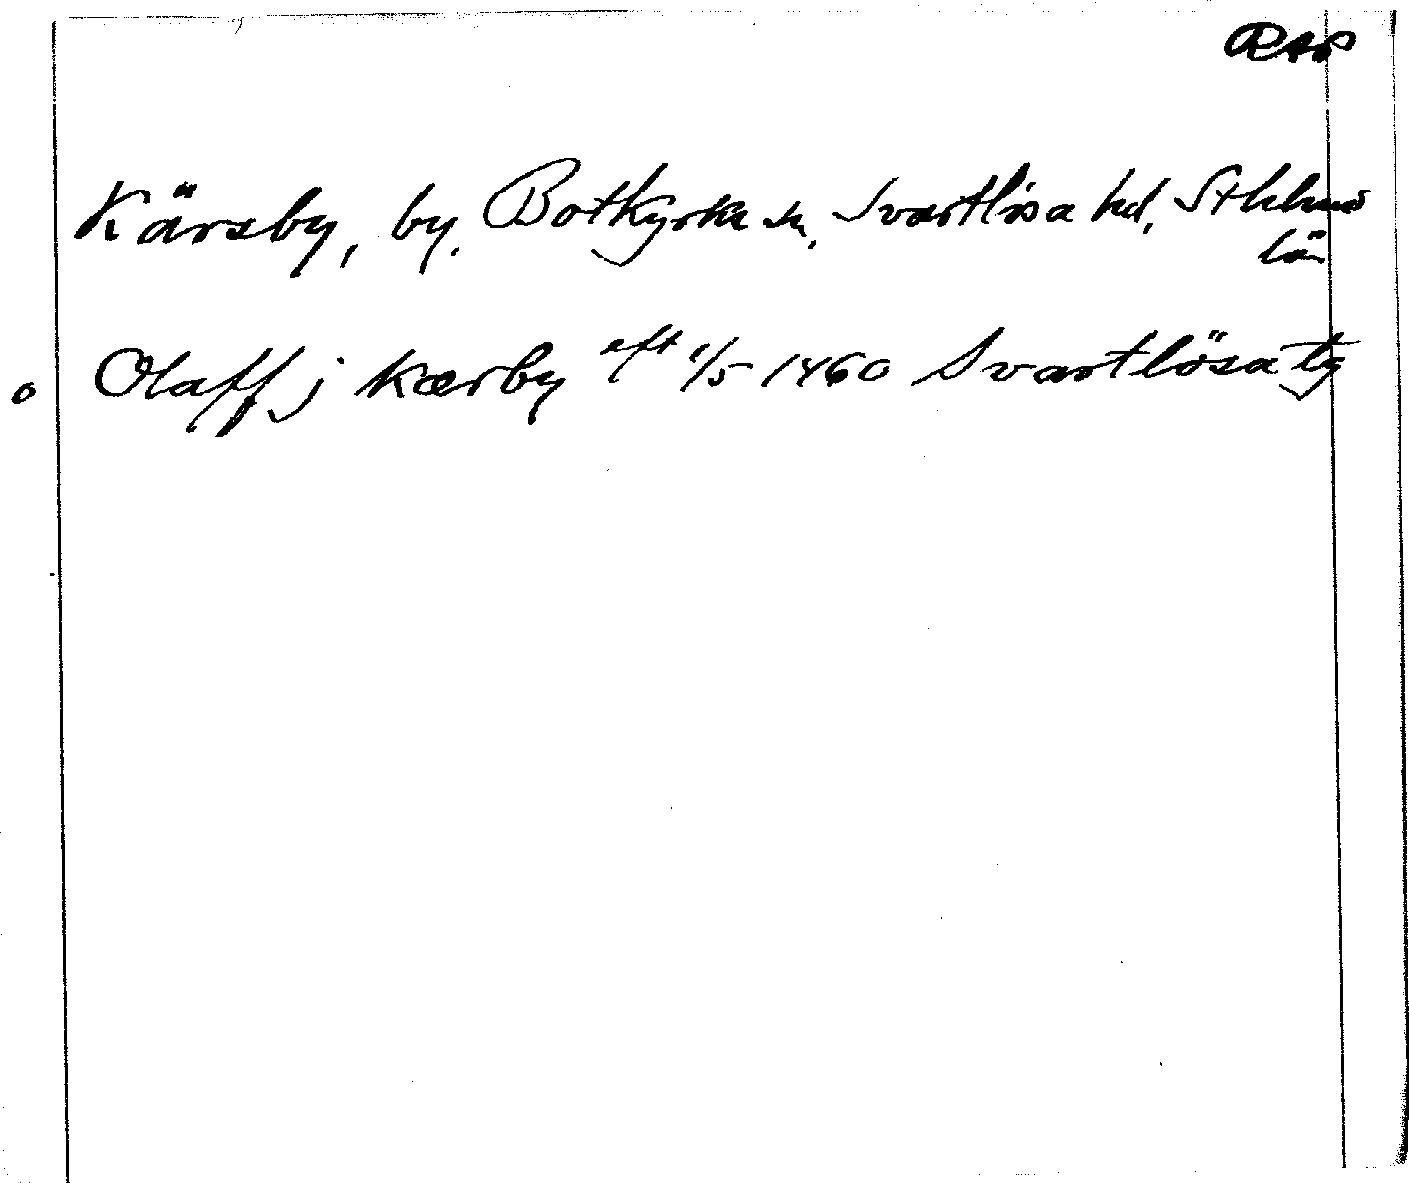 RAP
Kärsby, by. Botkyrka sn, Svartlösa hd, Sthlms
län
o Olaff j kærby eft 1/5 1460 Svartlösa tg